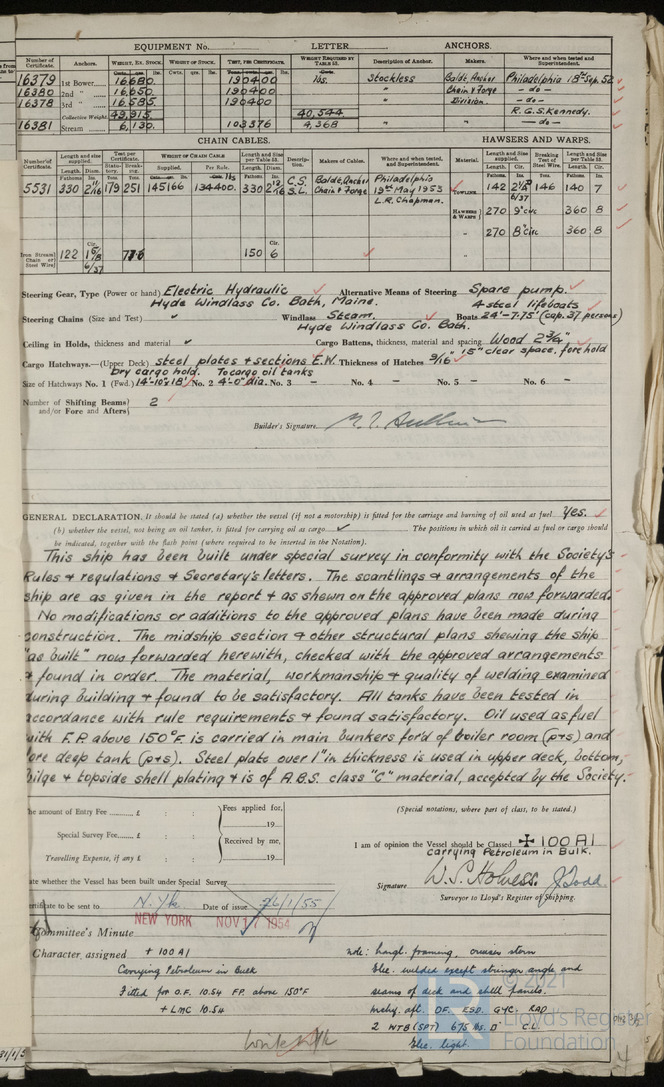 EQUIPMENT No. LETTER ANCHORS.
Number of Certificate. Anchors. WEIGHT, EX. STOCK. WEIGHT OF STOCK. TEST, PER CERTIFICATE. WEIGHT REQUIRED BY TABLE 53. Description of Anchor. Makers. Where and when tested, and Superintendent.
16379 1st Bower 16680 190400 Stockless Baldt Anchor Philadelphia 18th Sep. 52
16380 2nd " 16,650 190400 " Chain & Forge — do —
16378 3rd " 16,585 190400 " Division. — do —
Collective Weight 49,915 40,544 R.G.S. Kennedy.
16381 Stream 6,130. 103376 4,368 " " — do —
CHAIN CABLES. HAWSERS AND WARPS.
Number of Certificate. Length and size supplied. Test per Certificate. WEIGHT OF CHAIN CABLE Length and Size per Table 53. Description. Makers of Cables. Where and when tested, and Superintendent. Material. Length and Size supplied. Breaking Test of Steel Wire. Length and Size per Table 53.
5531 330 2 11/16 179 251 145166 134400. 330 2 12/16 C.S. S.L. Baldt, Anchor Chain & Forge Philadelphia 19th May 1953 L.R. Chapman. TOWLINE 142 2 1/8 6/37 146 140 7
HAWSERS & WARPS 270 9" circ 360 8
" 270 8" circ 360 8
Iron Stream Chain or Steel Wire 122 1 5/8 6/37 150 6
Steering Gear, Type (Power or hand) Electric Hydraulic Alternative Means of Steering Spare pump.
Hyde Windlass Co. Bath, Maine. 4 steel lifeboats
Steering Chains (Size and Test) ✓ Windlass Steam. Boats 24'-7.75' (cap. 37 persons)
Hyde Windlass Co. Bath.
Ceiling in Holds, thickness and material ✓ Cargo Battens, thickness, material and spacing Wood 2 3/4"
15" clear space, fore hold
Cargo Hatchways.—(Upper Deck) steel plates & sections E.W. Thickness of Hatches 3/16
Dry cargo hold. To cargo oil tanks
Size of Hatchways No. 1 (Fwd.) 14'-10" x 18' No. 2 4'-0" dia. No. 3 — No. 4 — No. 5 — No. 6 —
Number of Shifting Beams and/or Fore and Afters 2
Builder's Signature
GENERAL DECLARATION. It should be stated (a) whether the vessel (if not a motorship) is fitted for the carriage and burning of oil used as fuel Yes.
(b) whether the vessel, not being an oil tanker, is fitted for carrying oil as cargo ✓ The positions in which oil is carried as fuel or cargo should
be indicated, together with the flash point (where required to be inserted in the Notation).
This ship has been built under special survey in conformity with the Society's
Rules & regulations & Secretary's letters. The scantlings & arrangements of the
ship are as given in the report & as shewn on the approved plans now forwarded.
No modifications or additions to the approved plans have been made during
construction. The midship section & other structural plans shewing the ship
"as built" now forwarded herewith, checked with the approved arrangements
& found in order. The material, workmanship & quality of welding examined
during building & found to be satisfactory. All tanks have been tested in
accordance with rule requirements & found satisfactory. Oil used as fuel
with F.P. above 150°F. is carried in main bunkers for'd of boiler room (p&s) and
fore deep tank (p&s). Steel plate over 1" in thickness is used in upper deck, bottom,
bilge & topside shell plating & is of A.B.S. class "C" material, accepted by the Society.
The amount of Entry Fee £ : : Fees applied for, (Special notations, where part of class, to be stated.)
19
Special Survey Fee £ : : Received by me, I am of opinion the Vessel should be Classed ✠ 100 A1
carrying Petroleum in Bulk.
Travelling Expense, if any £ : : 19
State whether the Vessel has been built under Special Survey
Signature W.S. Holness. J. Dodd.
Surveyor to Lloyd's Register of Shipping.
Certificate to be sent to N. Yk. Date of issue 26/1/55
NEW YORK NOV 17 1954
Committee's Minute
Character assigned + 100 A1
Carrying Petroleum in Bulk
Fitted for O.F. 10.54 F.P. above 150°F
+ LMC 10.54
note: longl. framing, cruiser stern
Elec. welded except stringer angle and
seams of deck and shell panels.
mchy. aft. DF. ESD. GYC. RAD
2 WTB (SPT) 675 lbs. D CL
Elec. light.
© 2021
Lloyd's Register
Foundation